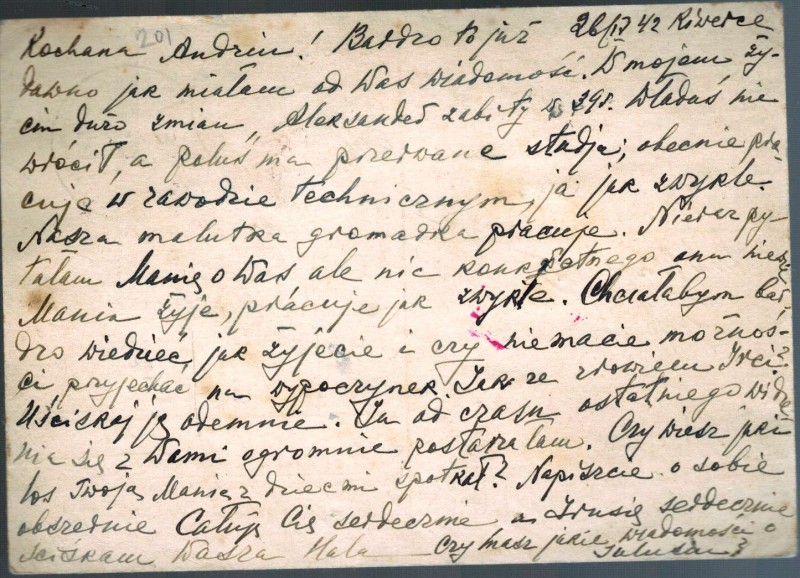 201
26/IV 42 Kiwerce
Kochana Andziu! Bardzo to już
dawno jak miałam od Was wiadomość. W mojem ży-
ciu dużo zmian, Aleksander zabity w 39r. Właduś nie
wrócił, a Poluś ma przerwane studja, obecnie pra-
cuje w zawodzie technicznym, ja jak zwykle.
Nasza malutka gromadka pracuje. Nieraz py-
tałam Manię o Was ale nic konkretnego
Mania żyje, pracuje jak zwykle. Chciałabym bar-
dzo wiedzieć, jak żyjecie i czy niemacie możnoś-
ci przyjechać na wypoczynek. Jak ze zdrowiem Irci?
Uściskaj ją odemnie. Ja od czasu ostatniego widze-
nia się z Wami ogromnie postarzałam. Czy wiesz jaki
los Twoją Manię z dziećmi spotkał? Napiszcie o sobie
obszernie Całuję Cię serdecznie a Irusię serdecznie
ściskam Wasza Hala
Czy masz jakie wiadomości o